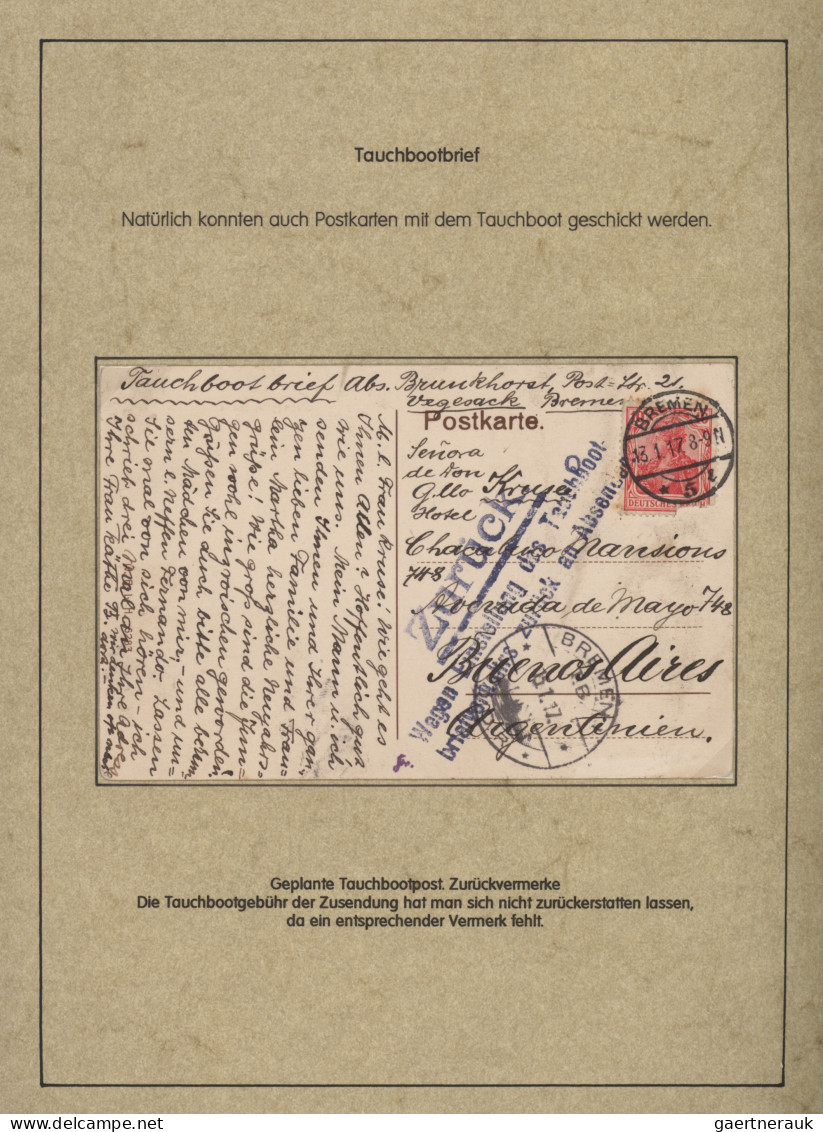 Tauchbootbrief
Natürlich konnten auch Postkarten mit dem Tauchboot geschickt werden.
Tauchbootbrief Abs. Brunkhorst, Post=Str. 21.
Vegesack Bremen
Postkarte.
BREMEN
13.1.17. 8-9 N
* 5 t
DEUTSCHES
Señora
de Don
G.llo Kruse
Hotel
Chacabuco Mansions
748
Avenida de Mayo 748
Buenos Aires
Argentinien.
Zurück
Wegen Einstellung des Tauchboot-
briefverkehrs zurück an Absender
BREMEN
B.
1.17.
M. l. Frau Kruse! Wie geht es
Ihnen Allen? Hoffentlich gut
wie uns. Mein Mann u. ich
senden Ihnen und Ihrer gan-
zen lieben Familie und Fräu-
lein Martha herzliche Neujahrs-
grüße! Wie groß sind die Jun-
gen wohl inzwischen geworden!
Grüßen Sie auch bitte alle
den Mädchen von mir, - und un-
sern l. Neffen Fernando. Lassen
Sie mal von sich hören - ich
schrieb drei Mal an Ihre Adresse
Ihre Frau Käthe B.
Geplante Tauchbootpost. Zurückvermerke
Die Tauchbootgebühr der Zusendung hat man sich nicht zurückerstatten lassen,
da ein entsprechender Vermerk fehlt.
www.delcampe.net
gaertnerauk